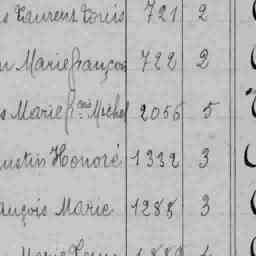 s Laurent Louis 721 2
n Marie françois 722 2
s Marie fçois Michel 2056 5
ustin Honoré 1332 3
ançois Marie 1288 3
Marie